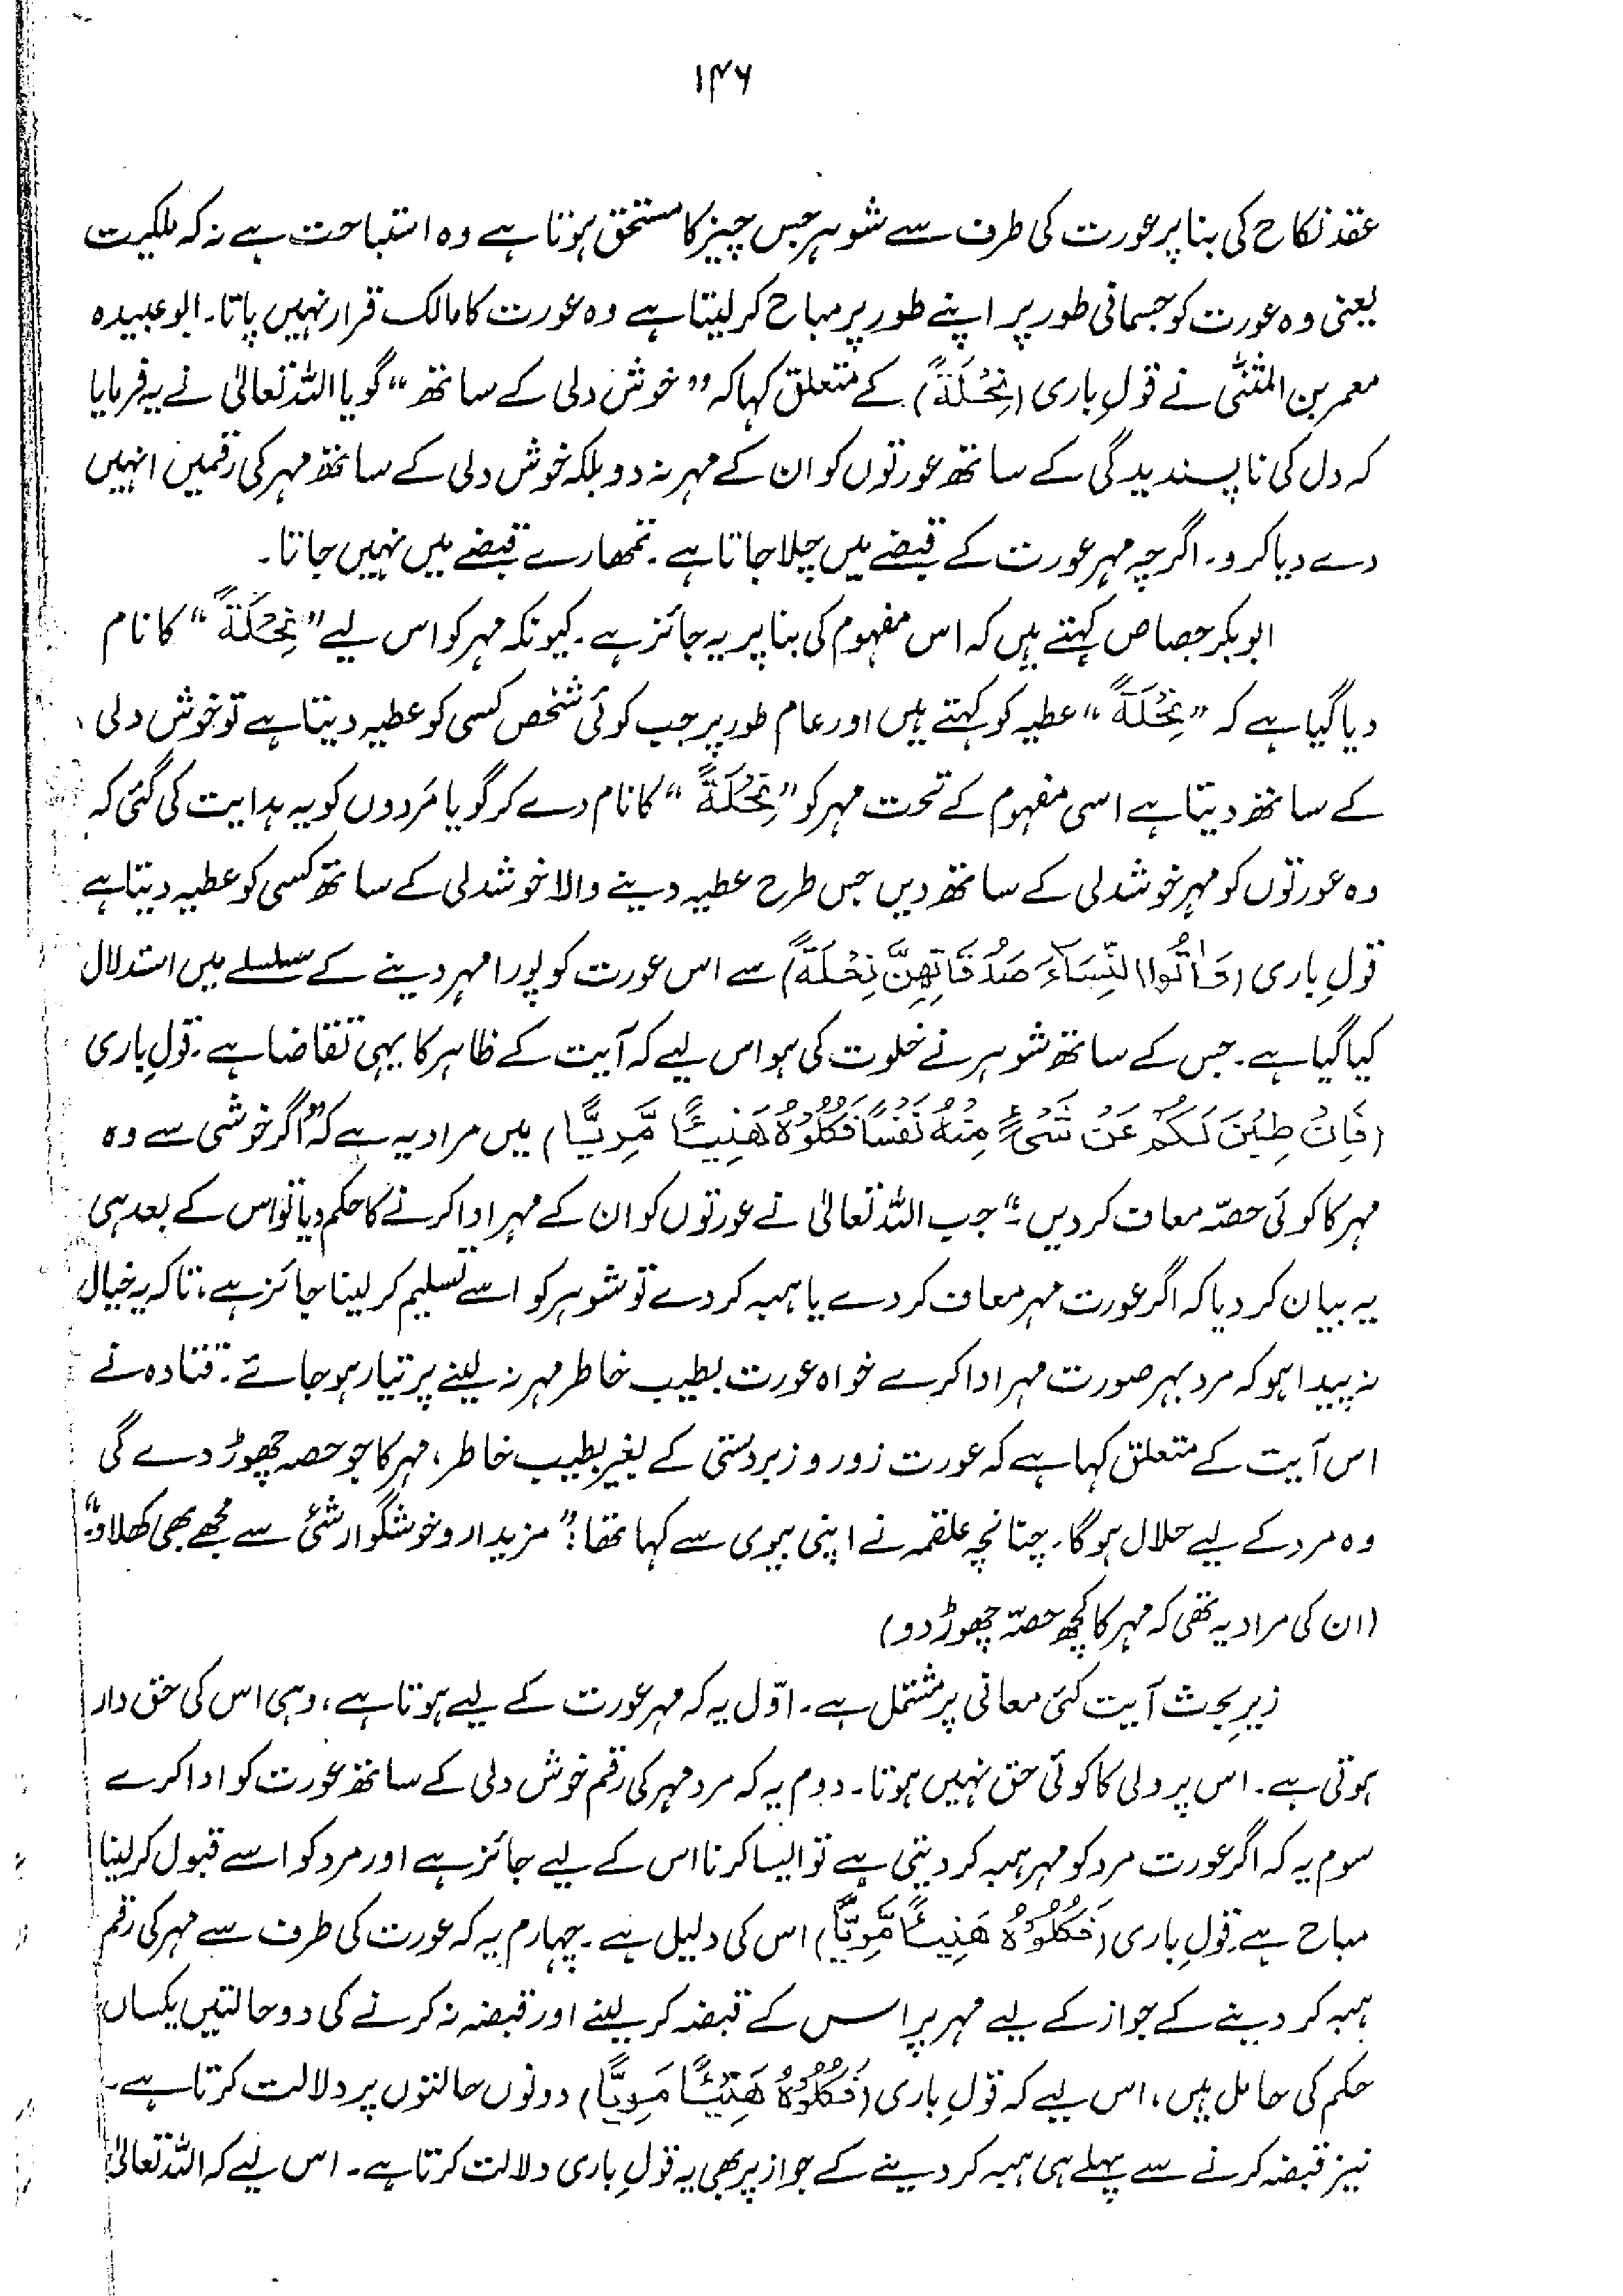 ۱۴۶
عقد نکاح کی بنا پر عورت کی طرف سے شوہر جس چیز کا مستحق ہوتا ہے وہ استباحت ہے نہ کہ ملکیت
یعنی وہ عورت کو جسمانی طور پر اپنے طور پر مباح کر لیتا ہے وہ عورت کا مالک قرار نہیں پاتا۔ ابو عبیدہ
معمر بن المثنّٰی نے قولِ باری (نِحْلَةً) کے متعلق کہا کہ ”خوش دلی کے ساتھ“ گویا اللہ تعالیٰ نے یہ فرمایا
کہ دل کی ناپسندیدگی کے ساتھ عورتوں کو ان کے مہر نہ دو بلکہ خوش دلی کے ساتھ مہر کی رقمیں انہیں
دے دیا کرو۔ اگرچہ مہر عورت کے قبضے میں چلا جاتا ہے۔ تمھارے قبضے میں نہیں جاتا۔
ابوبکر جصاص کہتے ہیں کہ اس مفہوم کی بنا پر یہ جائز ہے۔ کیونکہ مہر کو اس لیے ”نِحْلَةً“ کا نام
دیا گیا ہے کہ ”نِحْلَةً“ عطیہ کو کہتے ہیں اور عام طور پر جب کوئی شخص کسی کو عطیہ دیتا ہے تو خوش دلی
کے ساتھ دیتا ہے اسی مفہوم کے تحت مہر کو ”نِحْلَةً“ کا نام دے کر گویا مَردوں کو یہ ہدایت کی گئی کہ
وہ عورتوں کو مہر خوشدلی کے ساتھ دیں جس طرح عطیہ دینے والا خوشدلی کے ساتھ کسی کو عطیہ دیتا ہے
قولِ باری (وَاٰتُوا النِّسَآءَ صَدُقَاتِهِنَّ نِحْلَةً) سے اس عورت کو پورا مہر دینے کے سلسلے میں استدلال
کیا گیا ہے۔ جس کے ساتھ شوہر نے خلوت کی ہو اس لیے کہ آیت کے ظاہر کا یہی تقاضا ہے۔ قولِ باری
(فَاِنْ طِبْنَ لَكُمْ عَنْ شَیْءٍ مِنْهُ نَفْسًا فَكُلُوْهُ هَنِیْئًا مَّرِیًّا) میں مراد یہ ہے کہ ”اگر خوشی سے وہ
مہر کا کوئی حصّہ معاف کر دیں۔“ جب اللہ تعالیٰ نے عورتوں کو ان کے مہر ادا کرنے کا حکم دیا تو اس کے بعد ہی
یہ بیان کر دیا کہ اگر عورت مہر معاف کر دے یا ہبہ کر دے تو شوہر کو اسے تسلیم کر لینا جائز ہے، تاکہ یہ خیال
نہ پیدا ہو کہ مرد بہر صورت مہر ادا کرے خواہ عورت بطیب خاطر مہر نہ لینے پر تیار ہو جائے۔ قتادہ نے
اس آیت کے متعلق کہا ہے کہ عورت زور و زبردستی کے بغیر بطیب خاطر، مہر کا جو حصہ چھوڑ دے گی
وہ مرد کے لیے حلال ہوگا۔ چنانچہ علقمہ نے اپنی بیوی سے کہا تھا: ”مزیدار و خوشگوار شئی سے مجھے بھی کھلاؤ“
(ان کی مراد یہ تھی کہ مہر کا کچھ حصّہ چھوڑ دو)
زیرِ بحث آیت کئی معانی پر مشتمل ہے۔ اوّل یہ کہ مہر عورت کے لیے ہوتا ہے، وہی اس کی حق دار
ہوتی ہے۔ اس پر ولی کا کوئی حق نہیں ہوتا۔ دوم یہ کہ مرد مہر کی رقم خوش دلی کے ساتھ عورت کو ادا کرے
سوم یہ کہ اگر عورت مرد کو مہر ہبہ کر دیتی ہے تو ایسا کرنا اس کے لیے جائز ہے اور مرد کو اسے قبول کر لینا
مباح ہے۔ قولِ باری (فَكُلُوْهُ هَنِیْئًا مَّرِیًّا) اس کی دلیل ہے۔ چہارم یہ کہ عورت کی طرف سے مہر کی رقم
ہبہ کر دینے کے جواز کے لیے مہر پر اس کے قبضہ کر لینے اور قبضہ نہ کرنے کی دو حالتیں یکساں
حکم کی حامل ہیں، اس لیے کہ قولِ باری (فَكُلُوْهُ هَنِیْئًا مَرِیًّا) دونوں حالتوں پر دلالت کرتا ہے۔
نیز قبضہ کرنے سے پہلے ہی ہبہ کر دینے کے جواز پر بھی یہ قولِ باری دلالت کرتا ہے۔ اس لیے کہ اللہ تعالیٰ